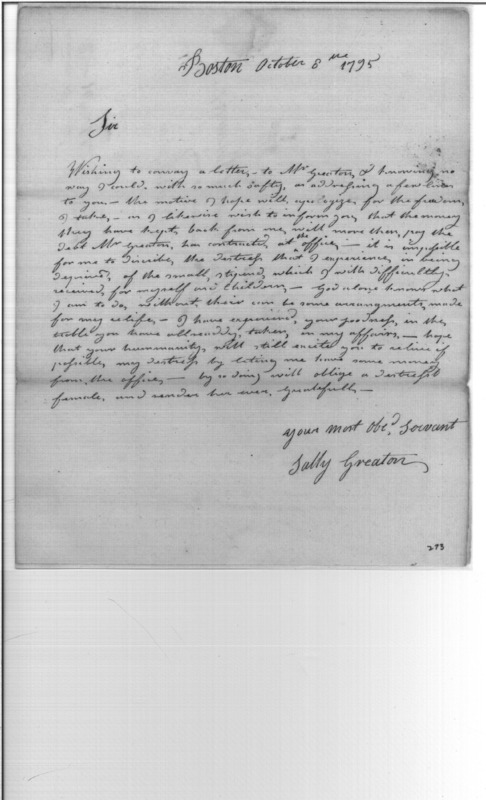 Boston October 8th 1795
Sir
Wishing to convay a letter, to Mr Greaton, & knowing no
way I could, with so much safty, as addressing a few lines
to you — the motive I hope will, apologize, for the freedom,
I take, — as I likewise wish to inform you, that the money
they have kept, back from me, will more than, pay the
debt Mr Greaton, has contracted, at the office, — it is impossible
for me to discribe, the destress that I experience, in being
deprived, of the small, stipend, which I with difficulty,
received, for myself and Children, — God alone knows what
I am to do, without their can be some arrangments, made
for my releife, — I have experienced, your goodness, in the
trouble you have allreaddy, taken, in my affairs, — hope
that your hummanity, will still excite you to relieve if
possible, my destress by letting me have some money
from the office, — by so doing will oblige a destress'd
female, and render her ever, gratefull, —
your most Obed. Servant
Sally Greaton
293